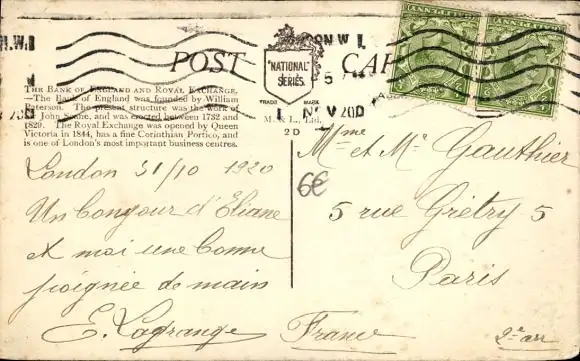 POST CARD
"NATIONAL"
SERIES.
TRADE MARK
M. & L., Ltd.
2D
THE BANK OF ENGLAND AND ROYAL EXCHANGE.
—The Bank of England was founded by William
Paterson. The present structure was the work of
John Soane, and was erected between 1732 and
1829. The Royal Exchange was opened by Queen
Victoria in 1844, has a fine Corinthian Portico, and
is one of London's most important business centres.
London 31/10 1920
Un bonjour d'Eliane
et moi une bonne
poignée de main
E. Lagrange
6€
Mme et Mr Gauthier
5 rue Grétry 5
Paris
France
2e arr